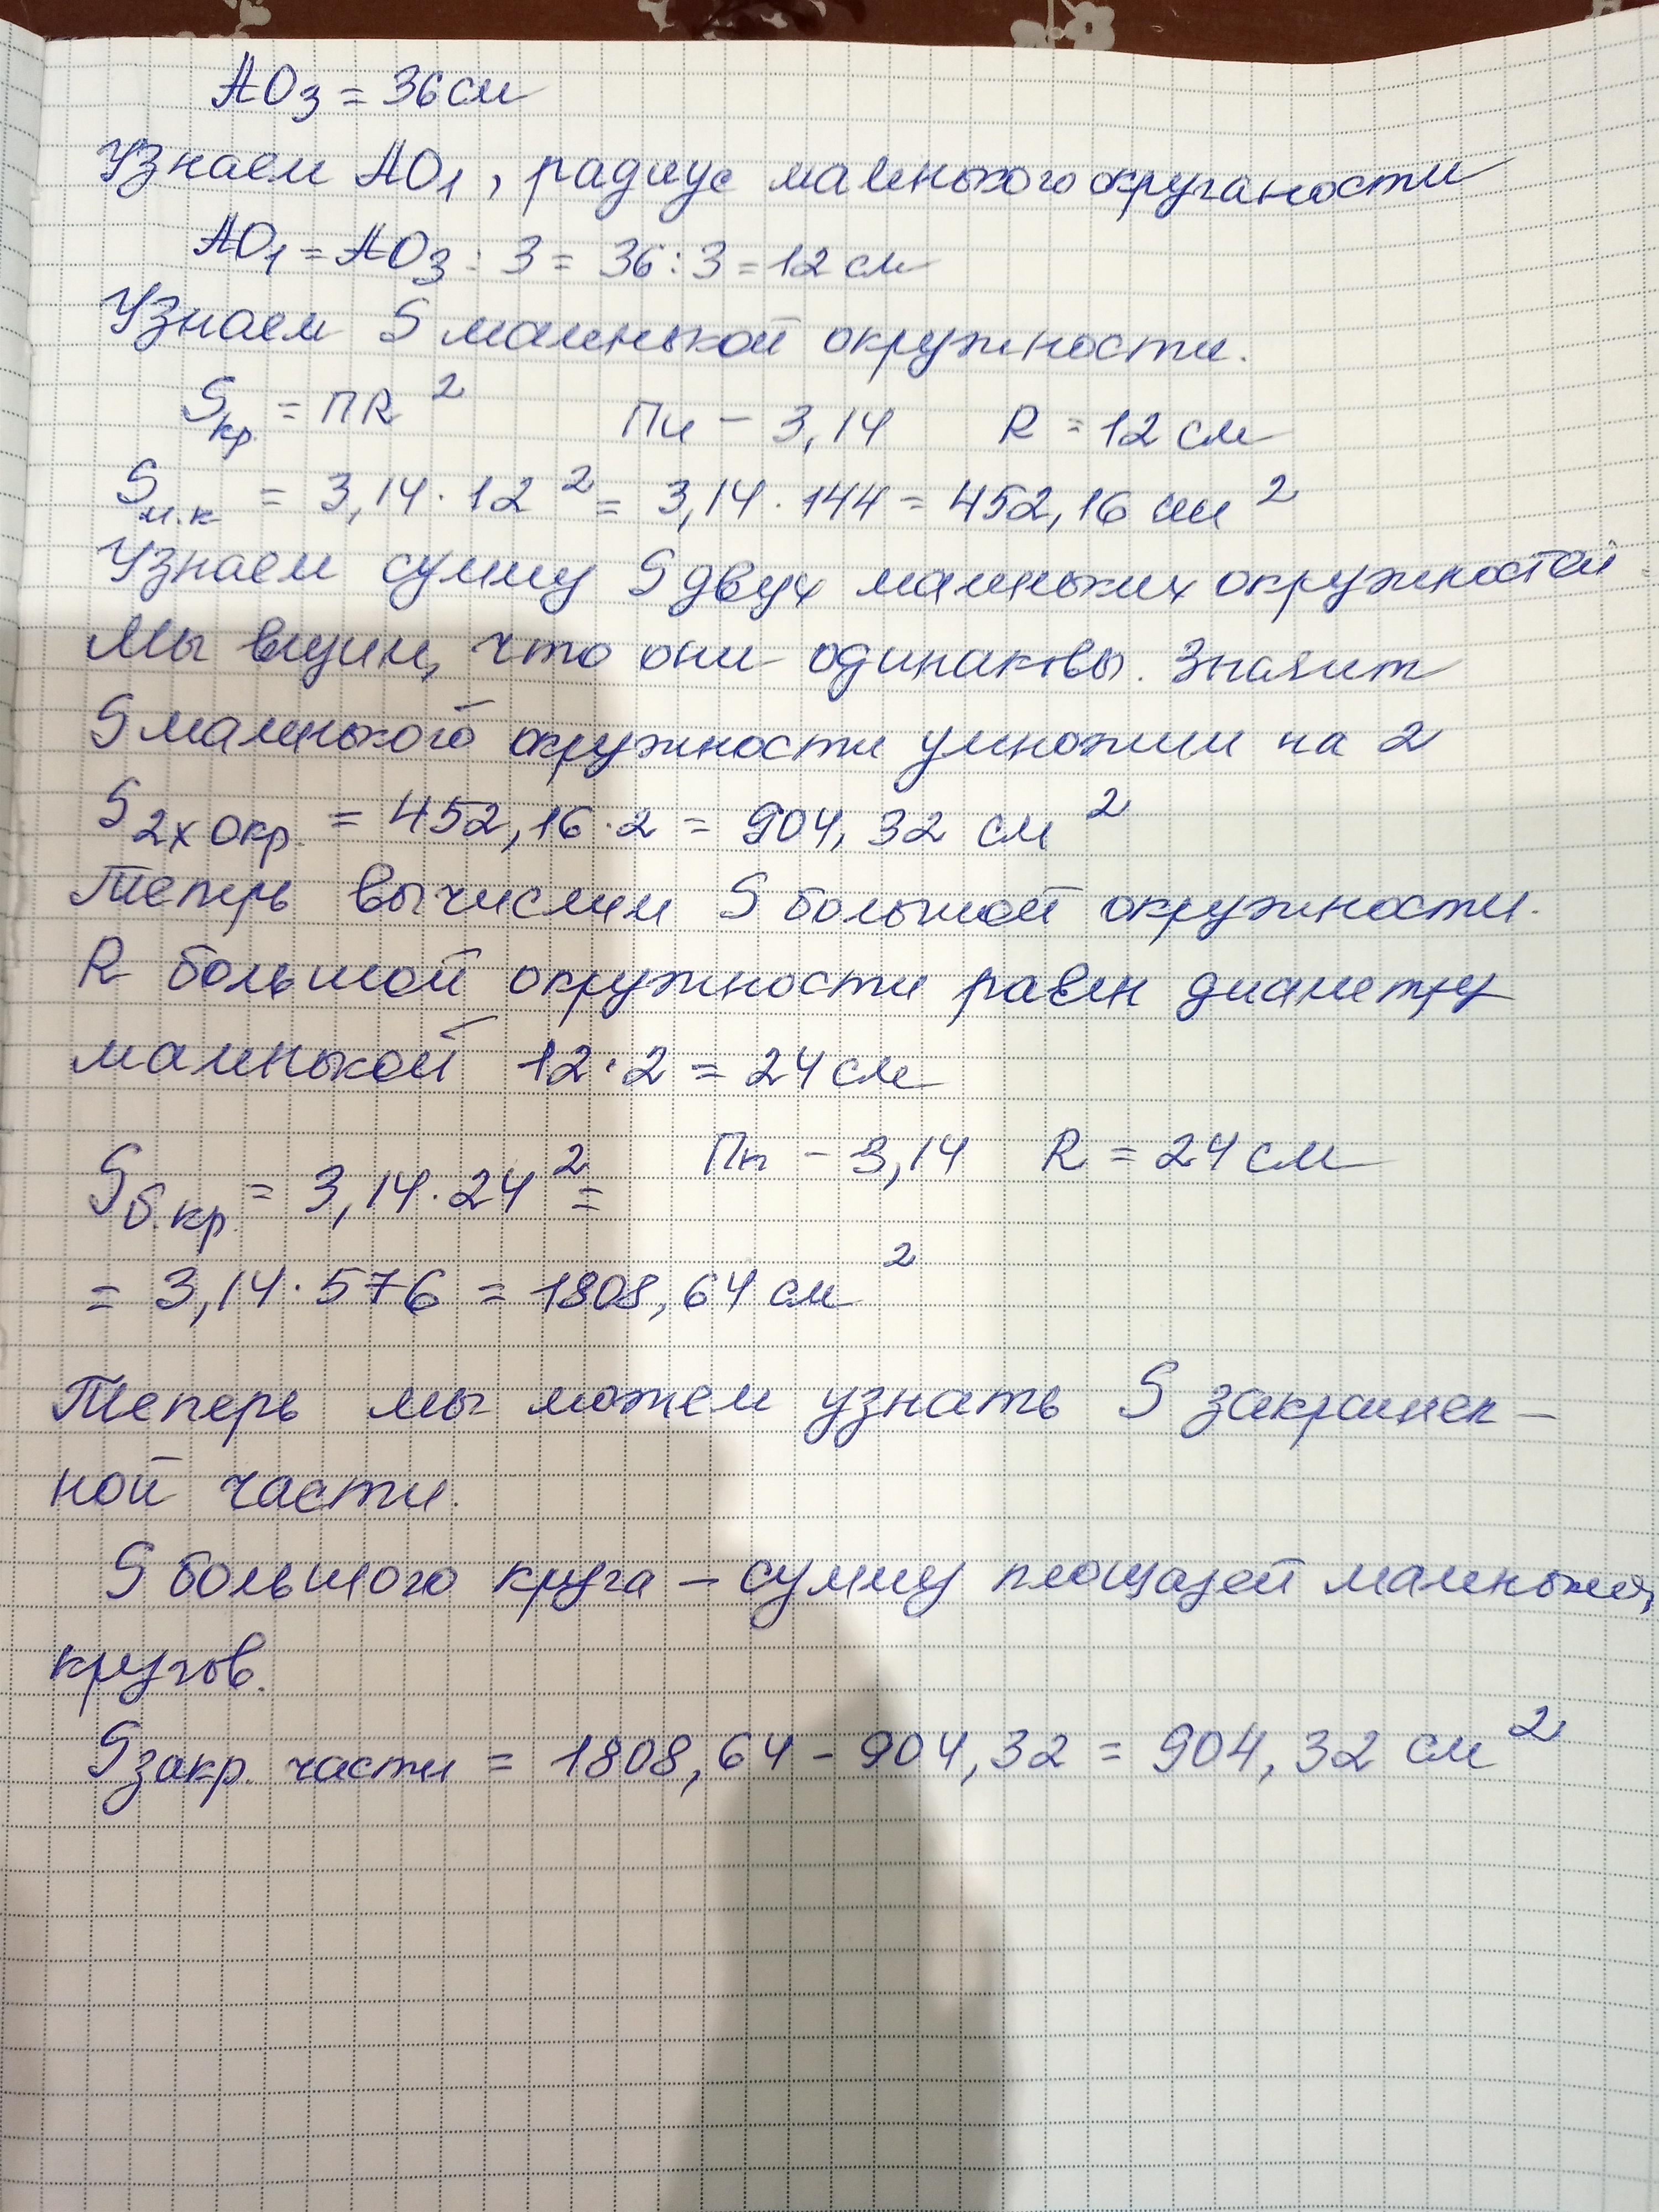 АО₃ = 36 см
Узнаем АО₁, радиус маленького окружности
АО₁ = АО₃ : 3 = 36 : 3 = 12 см
Узнаем S маленькой окружности.
Sкр. = ПR² Пи – 3,14 R = 12 см
Sм.к = 3,14 · 12² = 3,14 · 144 = 452,16 см²
Узнаем сумму S двух маленьких окружностей.
Мы видим, что они одинаковы. Значит
S маленького окружности умножим на 2
S2х окр. = 452,16 · 2 = 904,32 см²
Теперь вычислим S большой окружности.
R большой окружности равен диаметру
маленькой 12 · 2 = 24 см
Sб.кр. = 3,14 · 24² = Пи – 3,14 R = 24 см
= 3,14 · 576 = 1808,64 см²
Теперь мы можем узнать S закрашен-
ной части.
S большого круга – сумму площадей маленьких
кругов.
Sзакр. части = 1808,64 - 904,32 = 904,32 см²